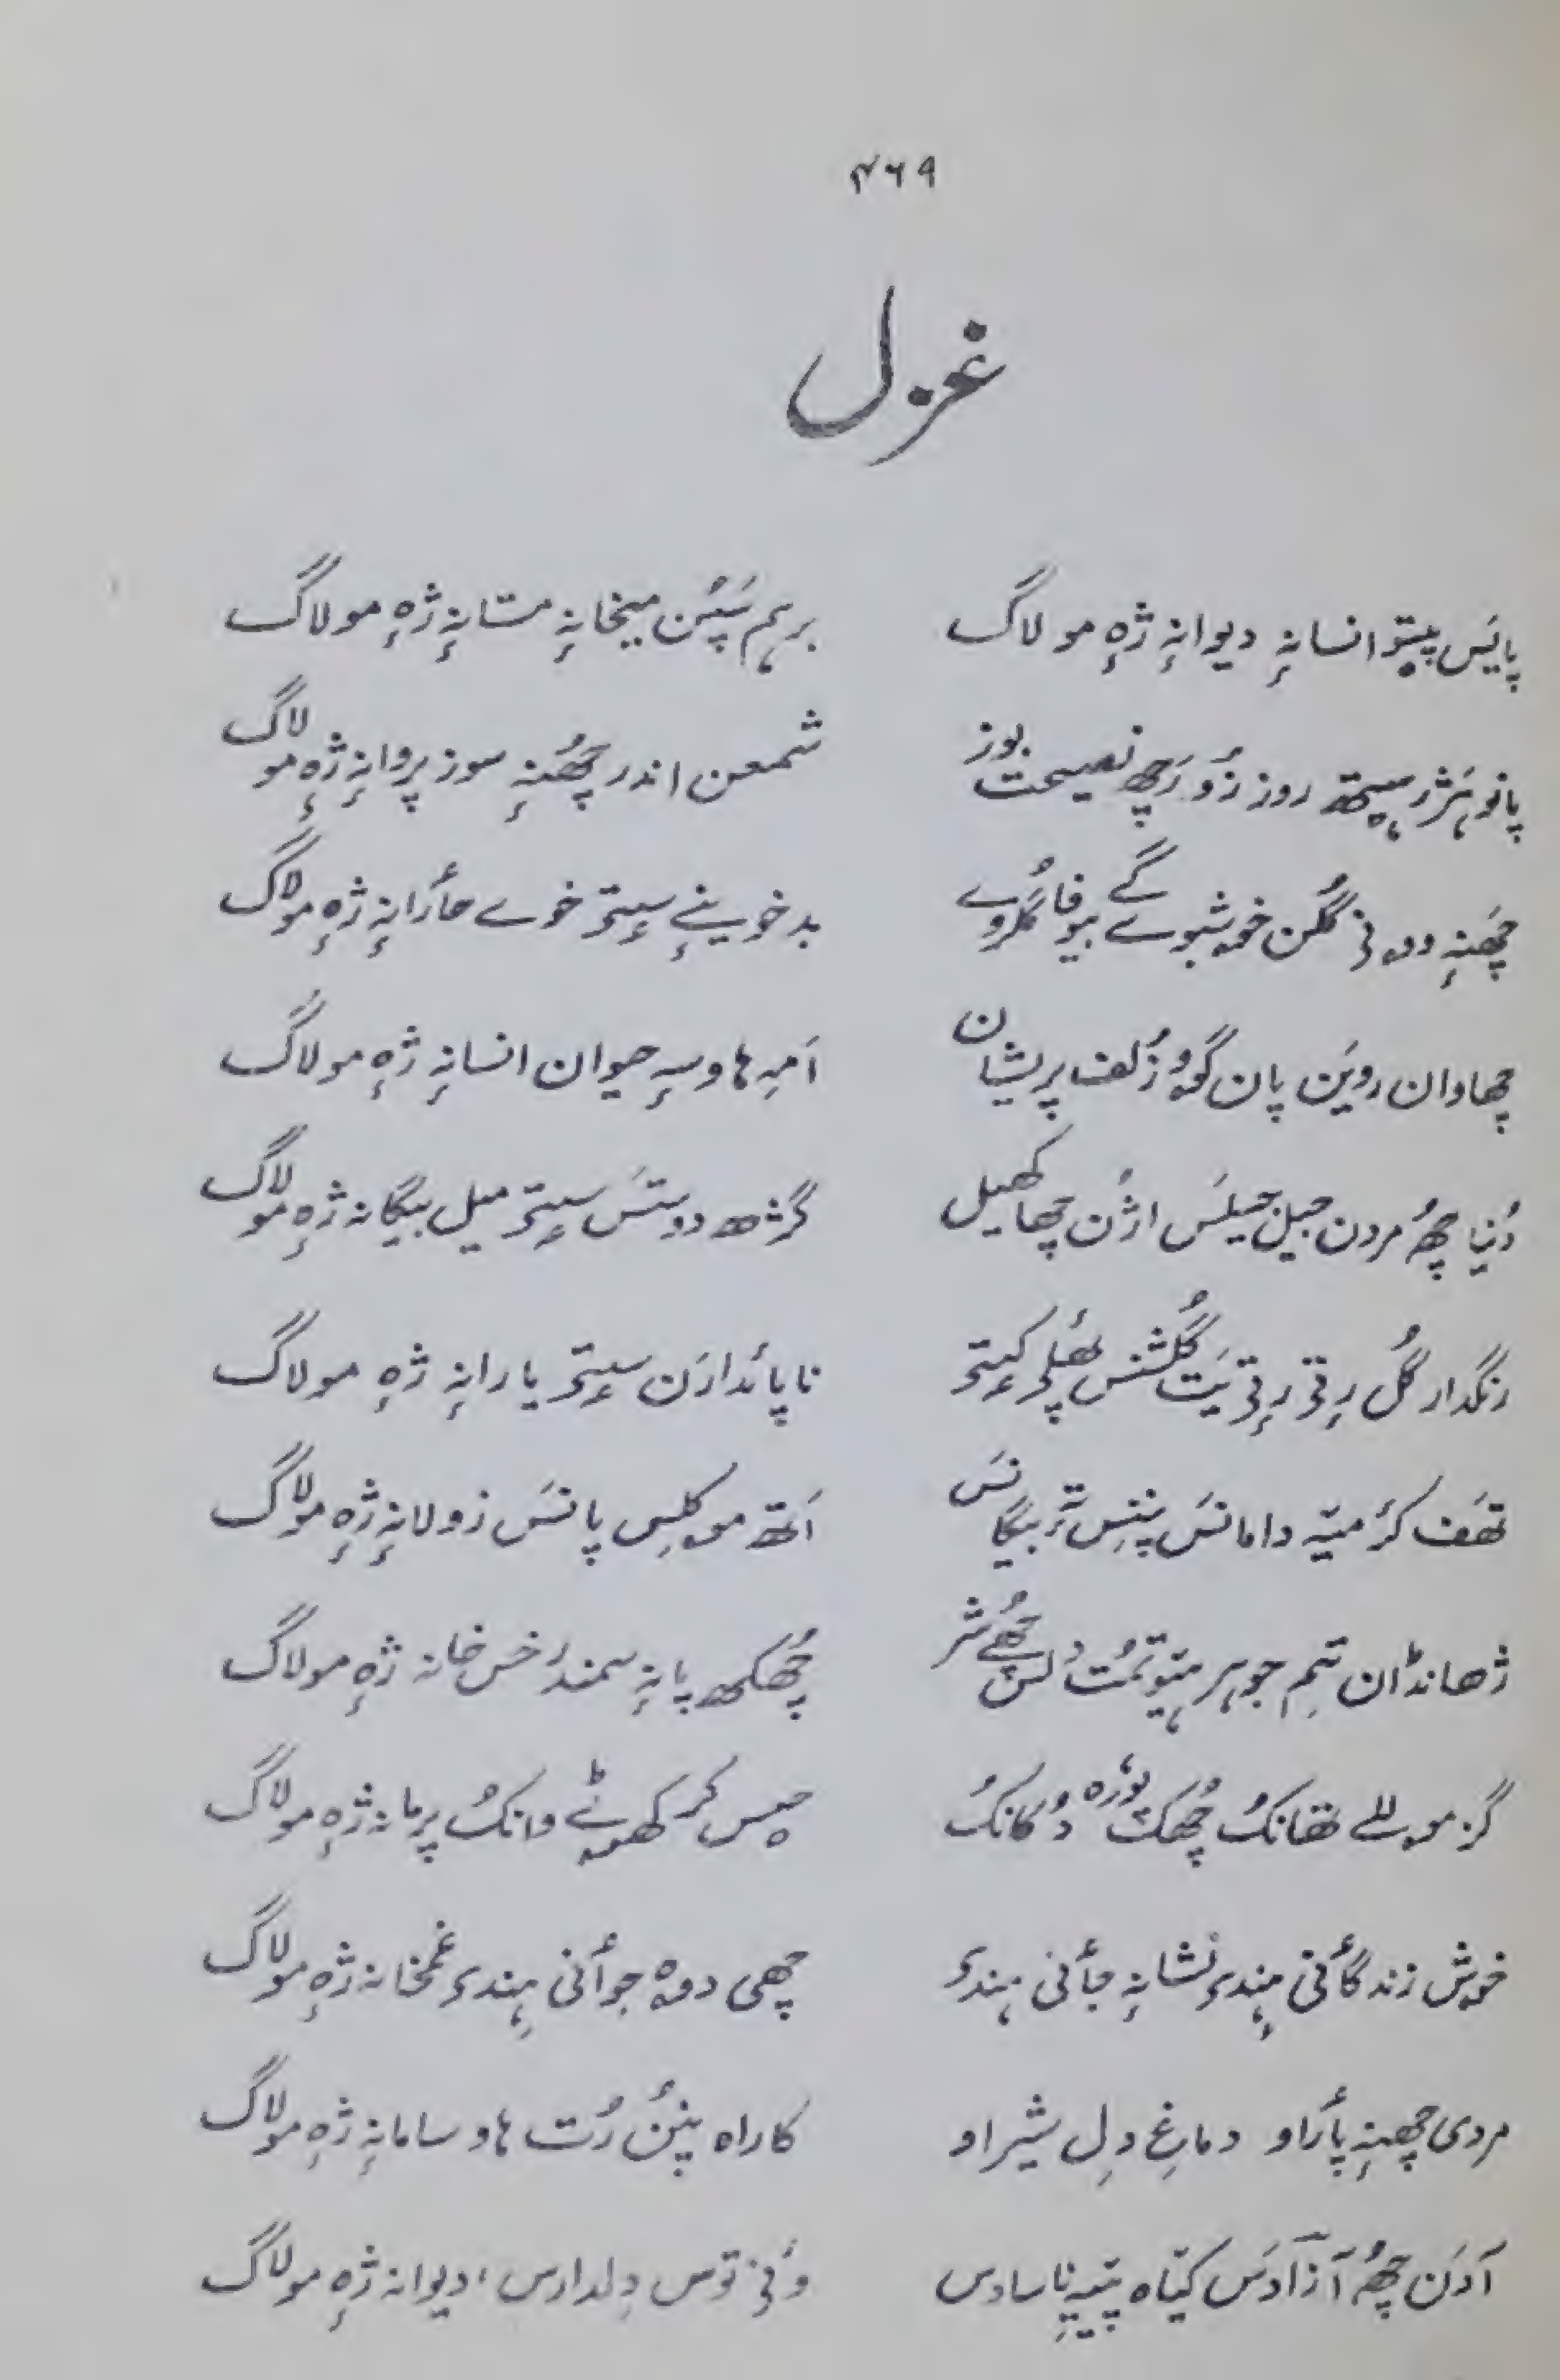 ۴۶۹
غزل
پایَس پیٚتو انسانہٕ دیوانہٕ ژہٕ مولاگ برہم سَپٕن میخانہٕ مستانہٕ ژہٕ مولاگ
پانو ۂژر سیٖتھ روز زُو رَچھ نصیحت بوز شمعن اندر چھُنہٕ سوز پروانہٕ ژہٕ مولاگ
چھَنہٕ دۄنی گُلن خۄشبوے گے بیوفا گُلروے بدخوینےٕ سیٖتۍ خوے حأرانہٕ ژہٕ مولاگ
چھاوان رویَن پان گۄو زُلف پریشان اَمہِ ہاوسہٕ حیوان انسانہٕ ژہٕ مولاگ
دُنیا چھُ مردن جیل جیلَس اژُن چھا کھیل گژھ دوستَس سیٖتۍ میل بیگانہ ژہٕ مولاگ
رنگدار گُل رٕتۍ رٕتۍ یَتھ گُلشنس پھٔلۍ کیٖتۍ ناپأدارَن سیٖتۍ یارانہٕ ژہٕ مولاگ
تھَف کٔر میٚہ دامانَس پننِس تہٕ بیگانَس اَتھ موکلِس پانَس زولانہٕ ژہٕ مولاگ
ژھانڈان تِم جوہر یِتۍ دِلس چھُے شر چھُکھ پانہٕ سمندر خس خانہ ژہٕ مولاگ
گز مۄلے تھانکُ چھُکھ پورہ دُکانکُ چیس کر کھۄٹے وانکُ پرمانہ ژہٕ مولاگ
خۄش زندگأنی ہِندۍ نشانہٕ جأنی ہندۍ چھی دۄہ جوأنی ہِندۍ غمخانہ ژہٕ مولاگ
مردی چھنہٕ پأراو دماغِ دِل شیراو کاراہ پنُن رُت ہاو سامانہٕ ژہٕ مولاگ
آدَن چھُ آزادَس کیٚاہ وَنۍ تۄس دِلدارس، دیوانہ ژہٕ مولاگ